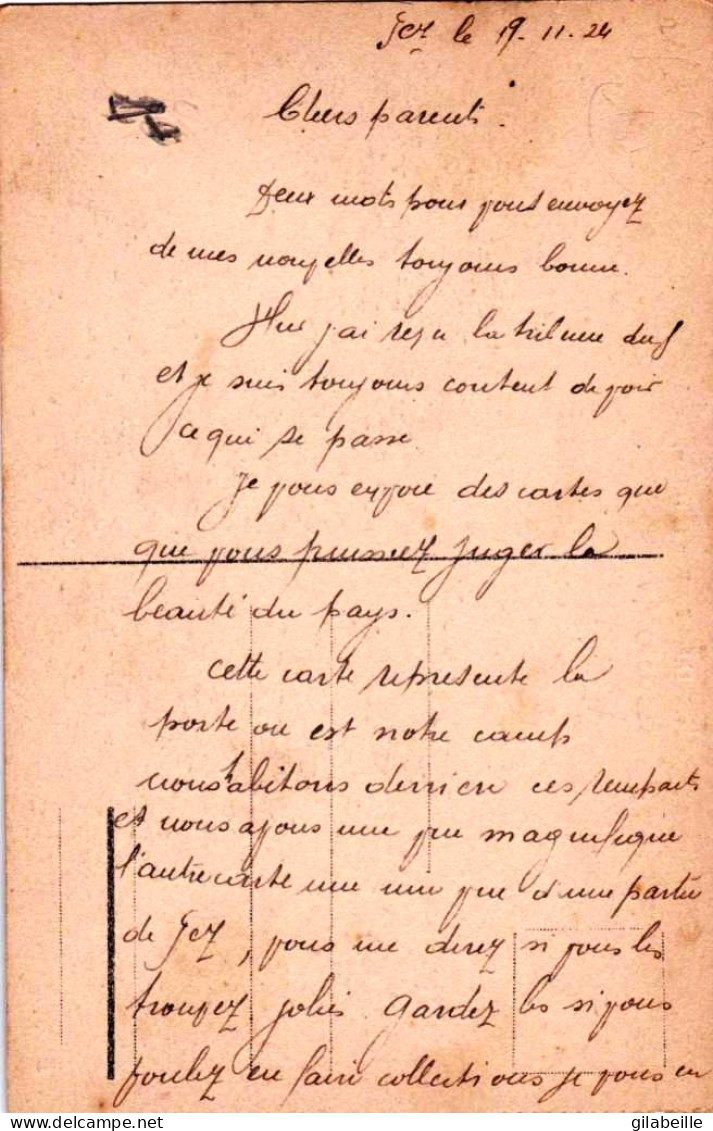 Fez le 19-11-24
Chers parents.
Deux mots pour vous envoyez
de mes nouvelles toujours bonne.
Hier j'ai reçu la tribune
et je suis toujours content de voir
ce qui se passe
Je vous envoie des cartes que
que vous puissiez juger la
beauté du pays.
cette carte represente la
porte ou est notre camp
nous habitons derriere ces remparts
et nous avons une vue magnifique
l'autre carte une vue d'une partie
de Fez, vous me direz si vous les
trouvez jolies gardez les si vous
voulez en faire collections je vous en
gilabeille